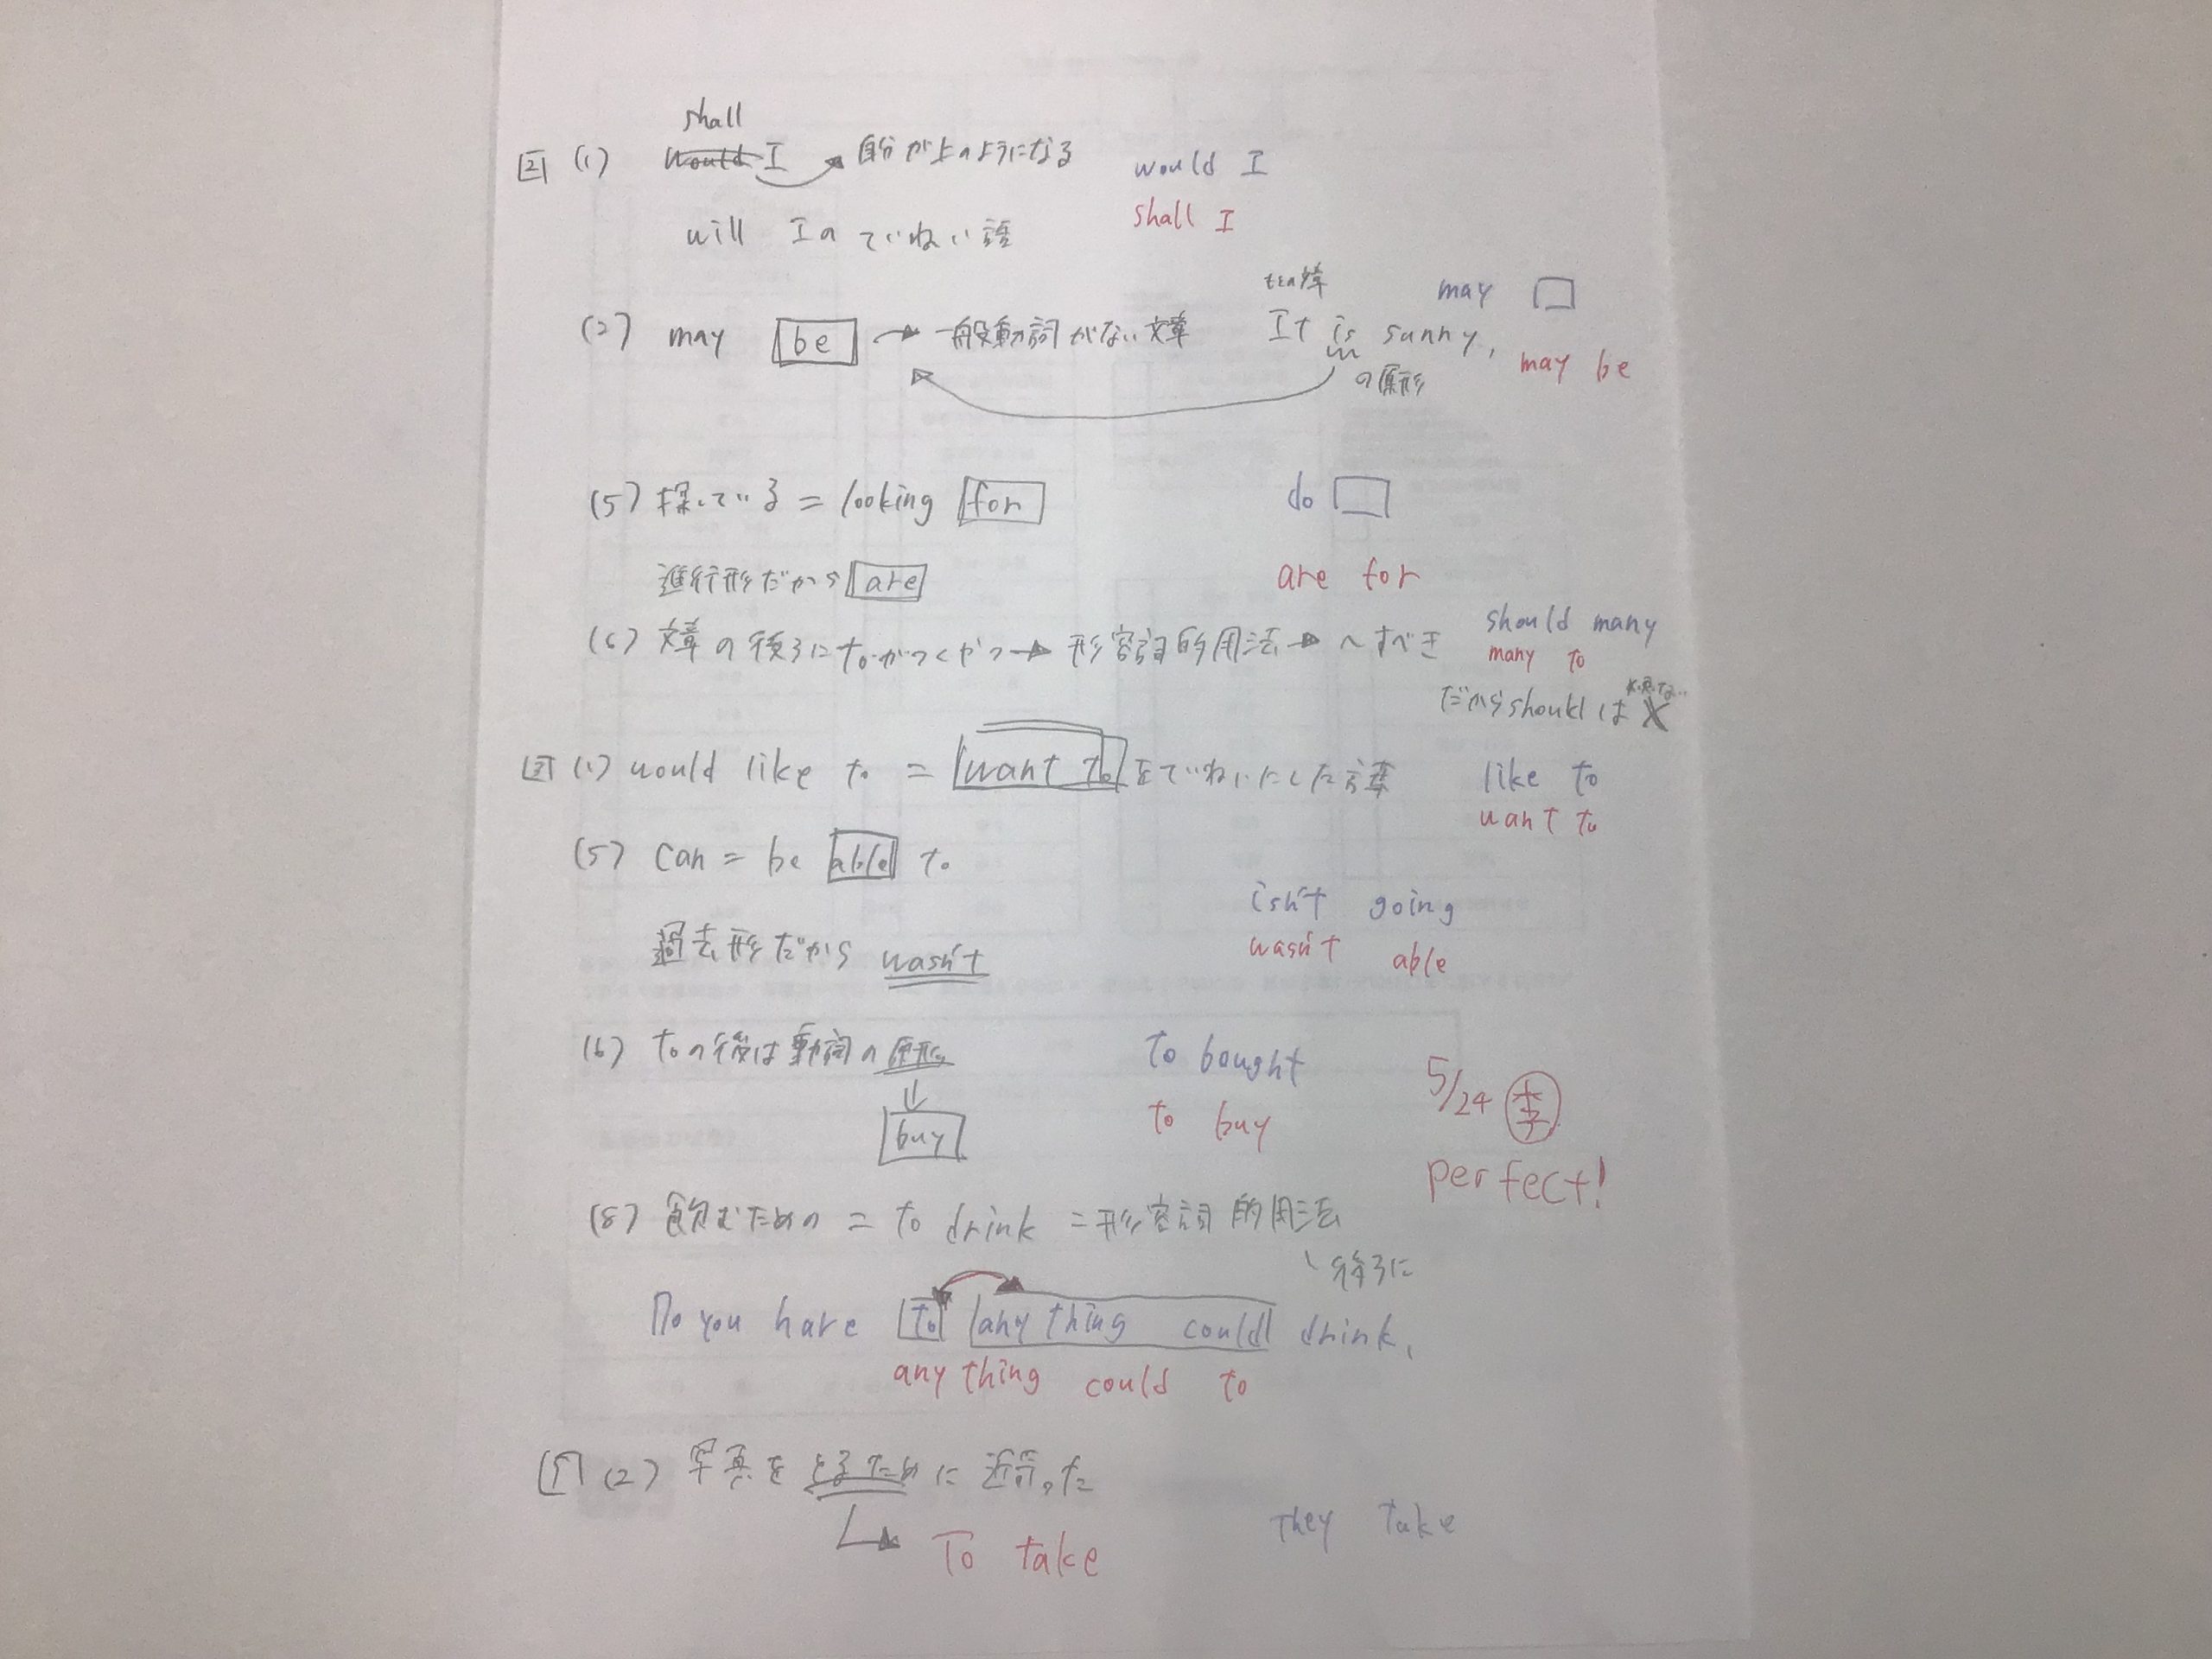 shall
2 (1) would I → 自分が上のようになる would I
will Iのていねい語 shall I
may
(2) may be → 一般動詞がない文章 It is sunny, may be
の原形
(5) 探している = looking for do
進行形だから are are for
(6) 文章の後ろにtoがつくやつ → 形容詞的用法 → ~すべき should many
many to
だからshouldは X
(1) would like to = want to をていねいにした言葉 like to
want to
(5) can = be able to
isn't going
過去形だから wasn't wasn't able
(6) toの後は動詞の原形 to bought
buy to buy
5/24 李
perfect!
(8) 飲むための = to drink = 形容詞的用法
後ろに
Do you have to anything could drink.
anything could to
(2) 写真をとるために 近寄った
They take
To take